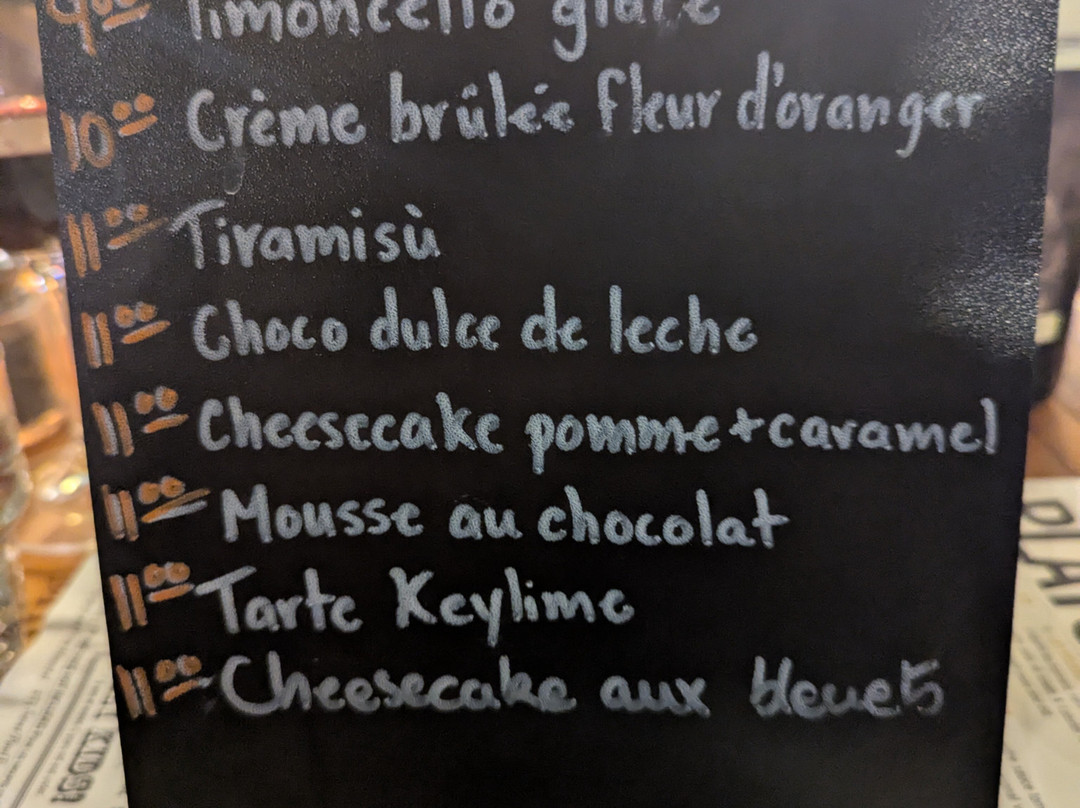 9.00 limoncello givré
10.00 Crème brûlée fleur d'oranger
11.00 Tiramisù
11.00 Choco dulce de leche
11.00 Cheesecake pomme+caramel
11.00 Mousse au chocolat
11.00 Tarte Keylime
11.00 Cheesecake aux bleuets
KIDS!